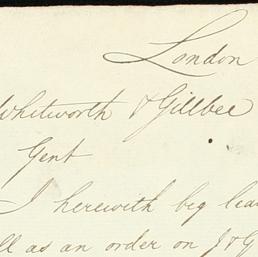 London
Whitworth & Gillbee
Gent
I herewith beg
as an order on J & G